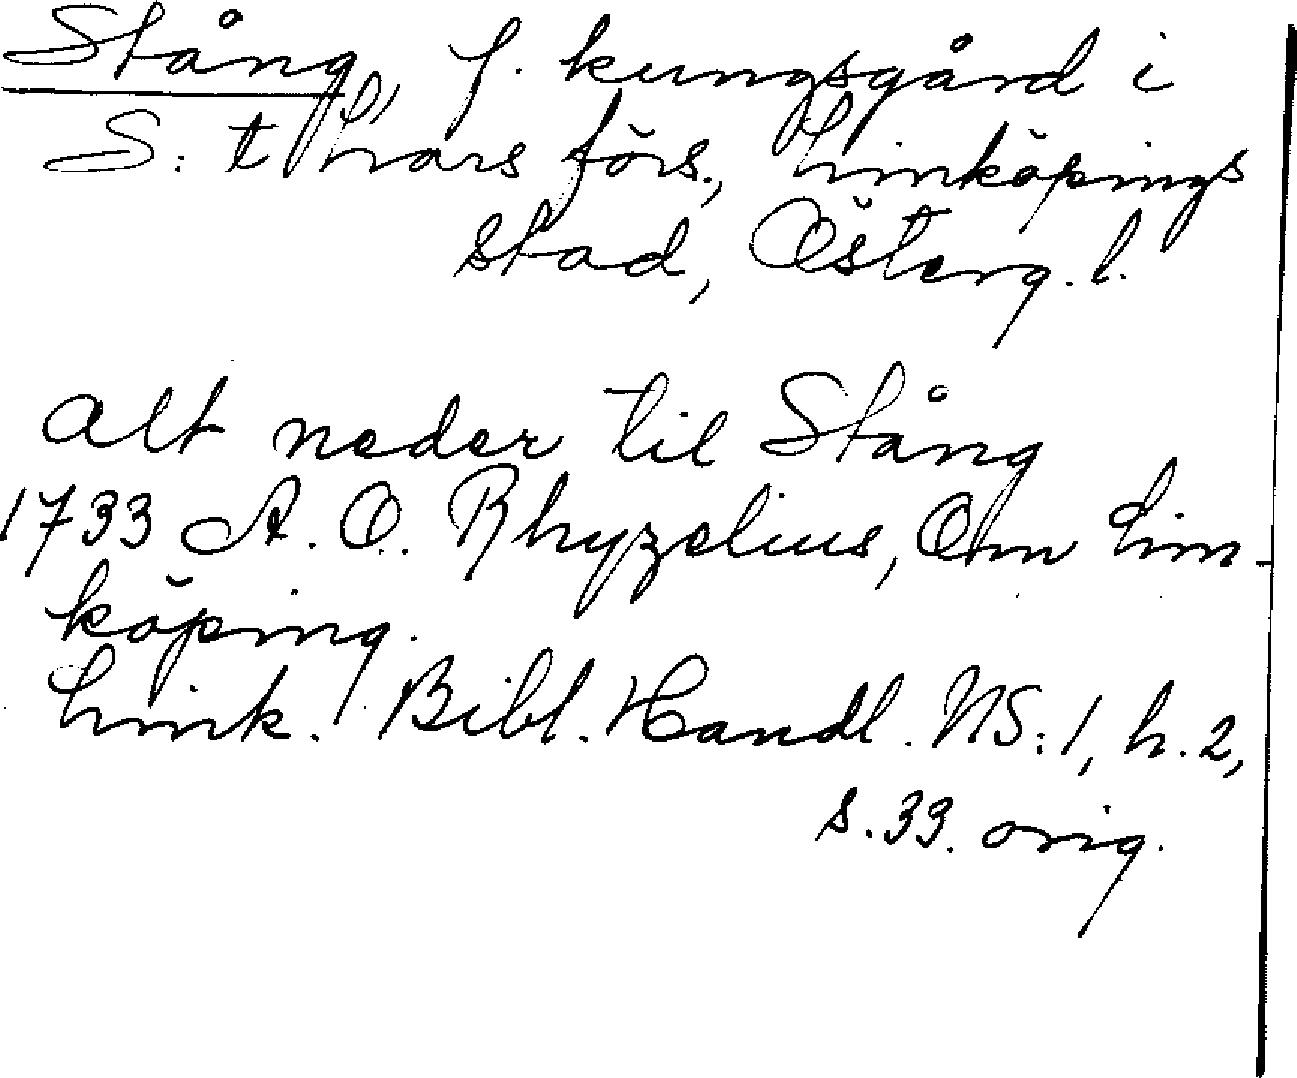 Stång, f. kungsgård i
S:t Lars förs., Linköpings
stad, Österg. l.
alt neder til Stång
1733 A. O. Rhyzelius, Om Lin-
köping.
Link. Bibl. Handl. NS:1, h. 2,
s. 33. orig.